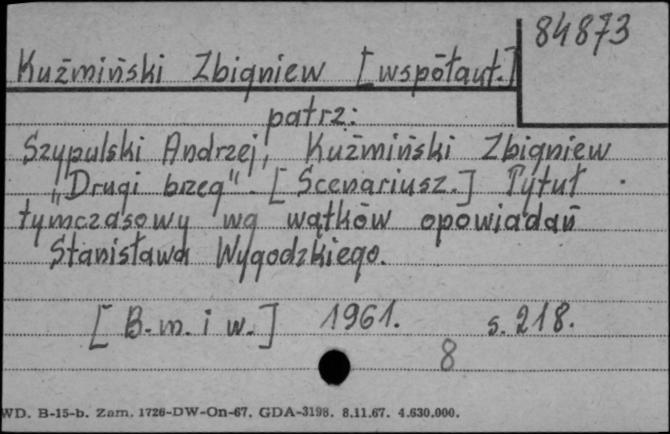 84873
Kuźmiński Zbigniew [współaut.]
patrz:
Szypulski Andrzej, Kuźmiński Zbigniew
"Drugi brzeg". [Scenariusz.] Tytuł
tymczasowy wg wątków opowiadań
Stanisława Wygodzkiego.
[B.m. i w.] 1961. s. 218.
8
WD. B-15-b. Zam. 1726-DW-On-67. GDA-3198. 8.11.67. 4.630.000.